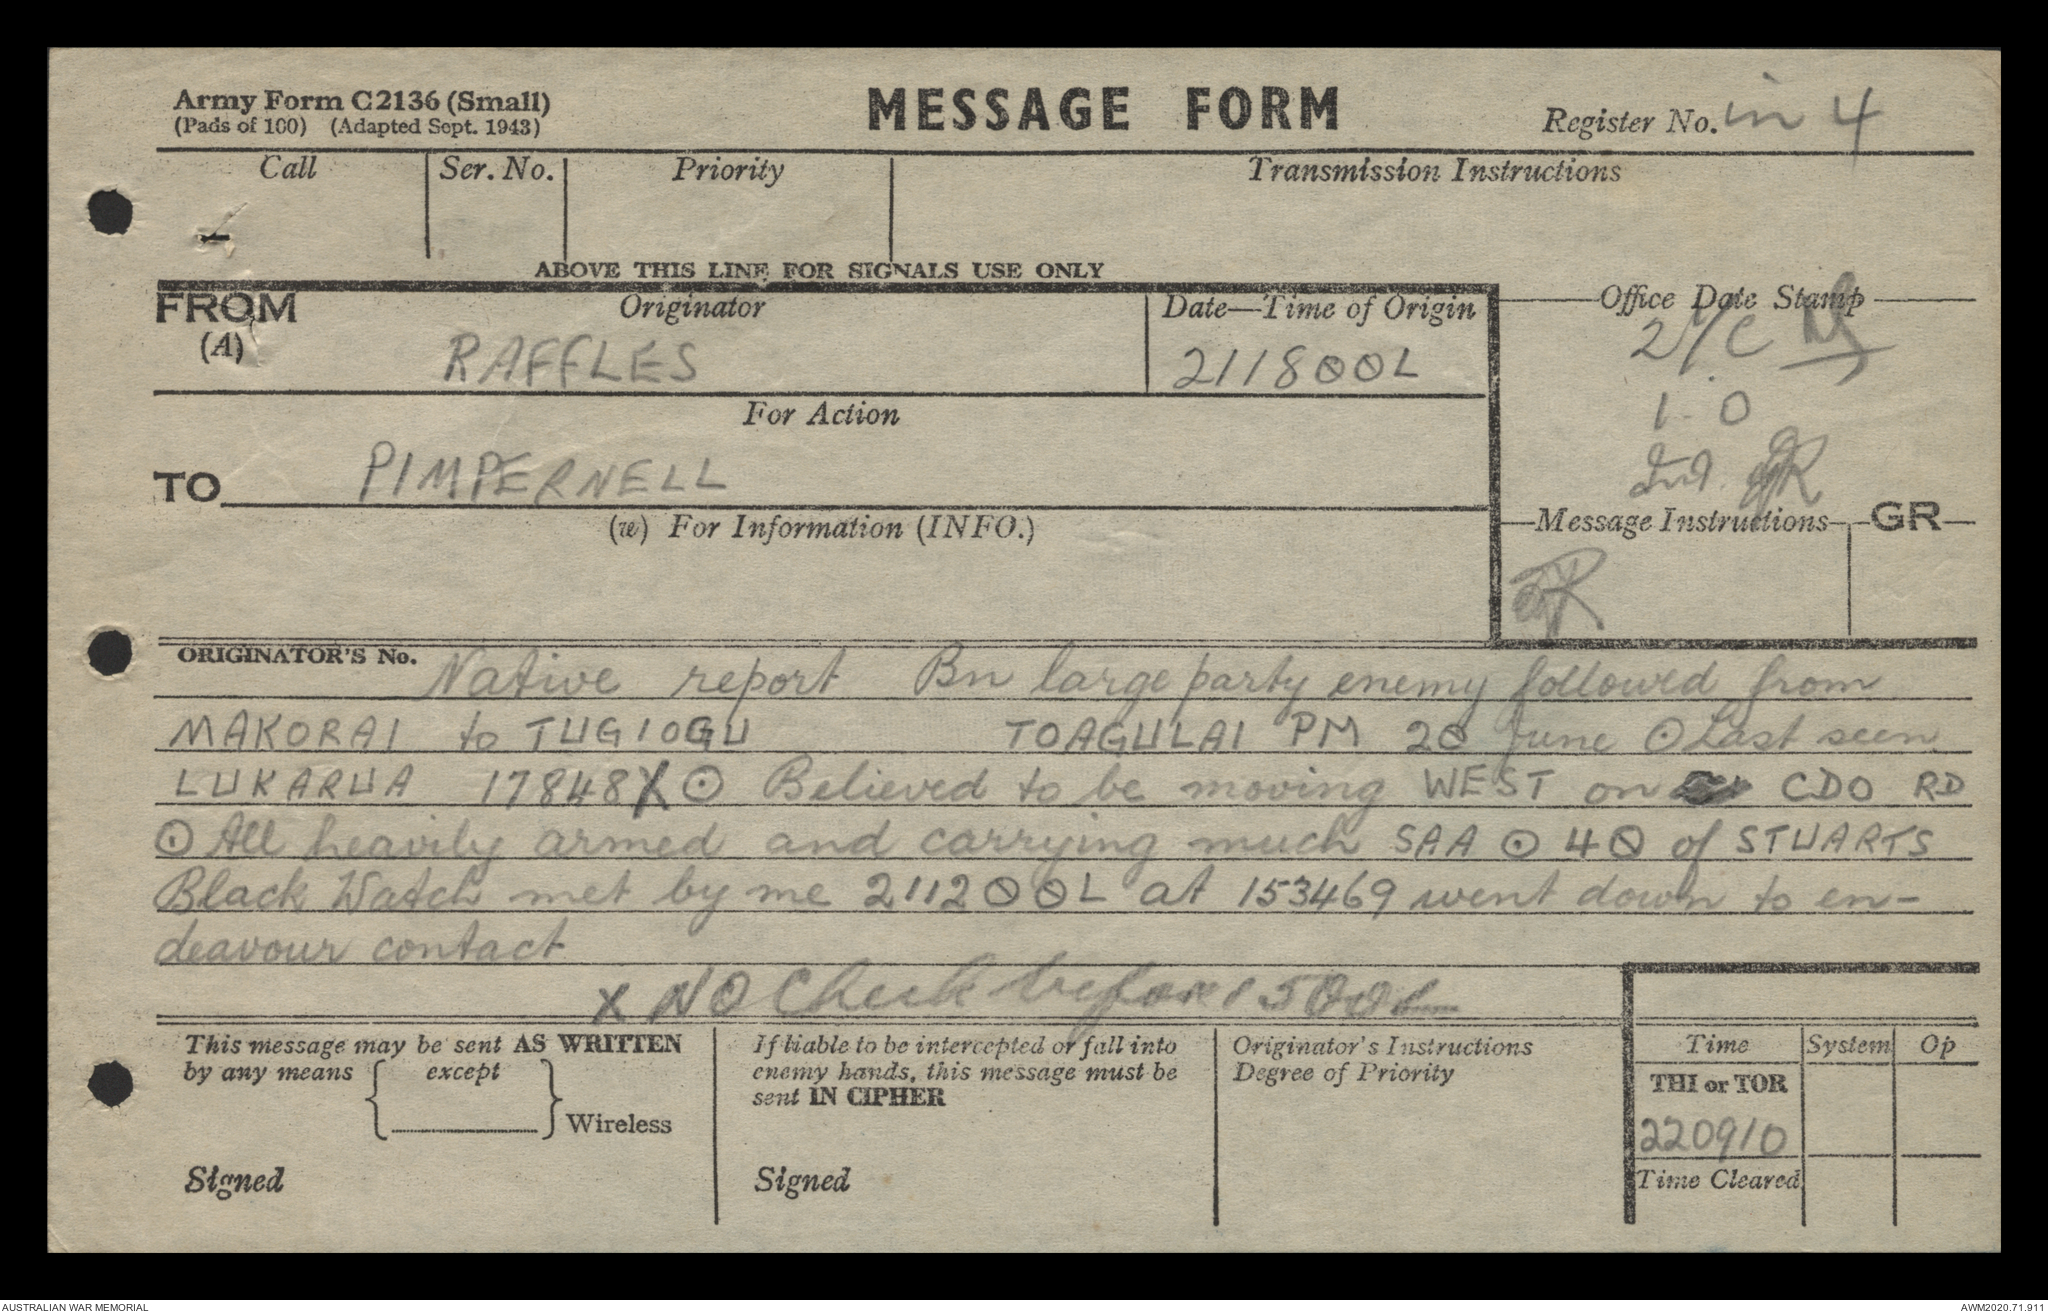 Army Form C2136 (Small)
(Pads of 100) (Adapted Sept. 1943)
MESSAGE FORM
Register No. in 4
Call
Ser. No.
Priority
Transmission Instructions
ABOVE THIS LINE FOR SIGNALS USE ONLY
FROM
(A)
Originator
RAFFLES
Date—Time of Origin
211800L
Office Date Stamp
2/C
I.O
Int.
For Action
TO
PIMPERNELL
(w) For Information (INFO.)
Message Instructions
GR
ORIGINATOR'S No.
Native report Bn large party enemy followed from
MAKORAI to TUGIOGU TOAGULAI PM 20 June ⊙ Last seen
LUKARUA 17848X ⊙ Believed to be moving WEST on CDO RD
⊙ All heavily armed and carrying much SAA ⊙ 40 of STUARTS
Black Watch met by me 211200L at 153469 went down to en-
deavour contact
X NO Check before 1500L
This message may be sent AS WRITTEN
by any means except
Wireless
Signed
If liable to be intercepted or fall into
enemy hands, this message must be
sent IN CIPHER
Signed
Originator's Instructions
Degree of Priority
Time
System
Op
THI or TOR
220910
Time Cleared
AUSTRALIAN WAR MEMORIAL
AWM2020.71.911